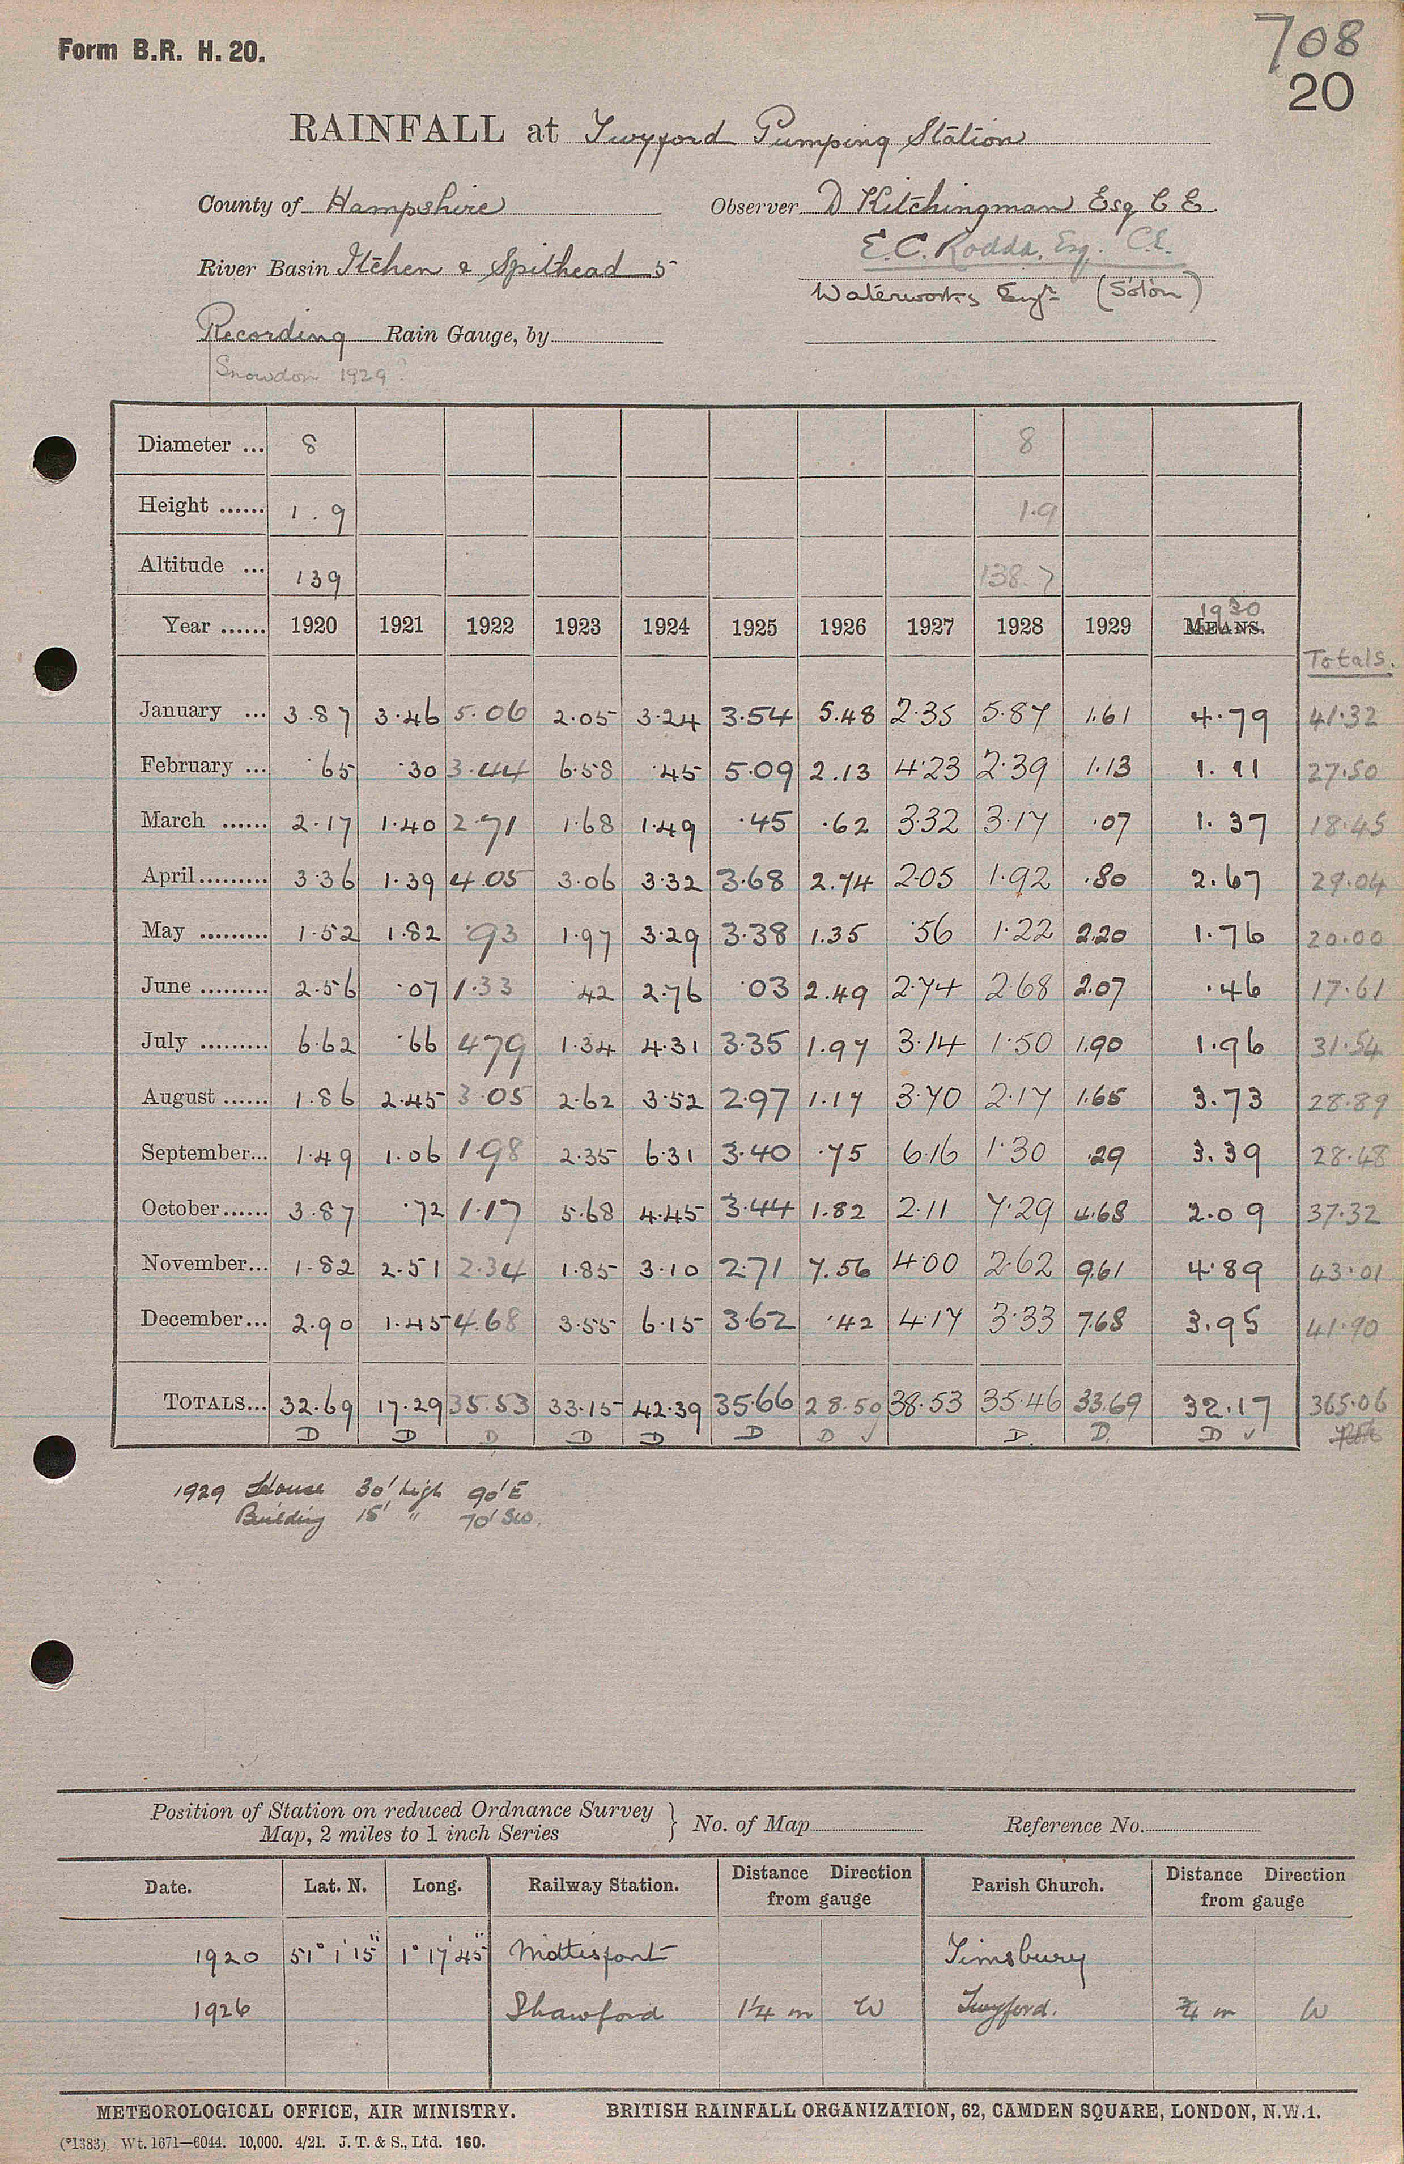 Form B.R. H. 20.
708
20
RAINFALL at Twyford Pumping Station
County of Hampshire Observer D Kitchingman Esq C E
E.C. Rodda, Esq. C.E.
River Basin Itchen & Spithead 5
Waterworks Engr (S'oton)
Recording Rain Gauge, by
Snowdon 1929?
Diameter ... 8 8
Height ...... 1.9 1.9
Altitude ... 139 138.7
1930
Year ...... 1920 1921 1922 1923 1924 1925 1926 1927 1928 1929 MEANS.
Totals.
January ... 3.87 3.46 5.06 2.05 3.24 3.54 5.48 2.35 5.87 1.61 4.79 41.32
February ... .65 .30 3.44 6.58 .45 5.09 2.13 4.23 2.39 1.13 1.11 27.50
March ...... 2.17 1.40 2.71 1.68 1.49 .45 .62 3.32 3.17 .07 1.37 18.45
April ......... 3.36 1.39 4.05 3.06 3.32 3.68 2.74 2.05 1.92 .80 2.67 29.04
May ......... 1.52 1.82 .93 1.97 3.29 3.38 1.35 .56 1.22 2.20 1.76 20.00
June ......... 2.56 .07 1.33 .42 2.76 .03 2.49 2.74 2.68 2.07 .46 17.61
July ......... 6.62 .66 4.79 1.34 4.31 3.35 1.97 3.14 1.50 1.90 1.96 31.54
August ...... 1.86 2.45 3.05 2.62 3.52 2.97 1.17 3.70 2.17 1.65 3.73 28.89
September... 1.49 1.06 1.98 2.35 6.31 3.40 .75 6.16 1.30 .29 3.39 28.48
October...... 3.87 .72 1.17 5.68 4.45 3.44 1.82 2.11 7.29 4.68 2.09 37.32
November... 1.82 2.51 2.34 1.85 3.10 2.71 7.56 4.00 2.62 9.61 4.89 43.01
December... 2.90 1.45 4.68 3.55 6.15 3.62 .42 4.17 3.33 7.68 3.95 41.90
TOTALS... 32.69 17.29 35.53 33.15 42.39 35.66 28.50 38.53 35.46 33.69 32.17 365.06
D D D D D D D ✓ D. D. D ✓
1929 House 30' high 90' E
Building 15' " 70' SW.
Position of Station on reduced Ordnance Survey } No. of Map Reference No.
Map, 2 miles to 1 inch Series
Date. Lat. N. Long. Railway Station. Distance Direction from gauge Parish Church. Distance Direction from gauge
1920 51° 1' 15" 1° 17' 45" Mottisfont Timsbury
1926 Shawford 1¼ m W Twyford. ¾ m W
METEOROLOGICAL OFFICE, AIR MINISTRY. BRITISH RAINFALL ORGANIZATION, 62, CAMDEN SQUARE, LONDON, N.W.1.
(*1383) Wt. 1671—6044. 10,000. 4/21. J. T. & S., Ltd. 160.